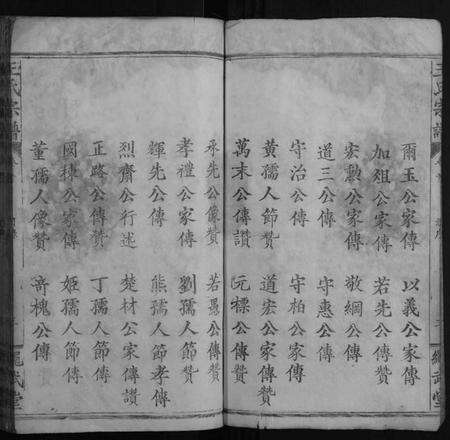 王氏宗譜
爾玉公家傳 以義公家傳
加俎公家傳 若先公傳贊
宏勲公家傳 敬綱公傳
道三公傳 守惠公傳
守治公傳 守柏公家傳
黄孺人節贊 道宏公家傳贊
萬末公傳讚 元標公傳贊
繩武堂
王氏宗譜
承先公像贊 若愚公傳贊
孝禮公家傳 劉孺人節贊
輝先公傳 熊孺人節孝傳
烈齋公行述 楚材公家傳讃
正路公傳贊 丁孺人節傳
國棟公家傳 姬孺人節傳
董孺人像贊 奇槐公傳
繩武堂